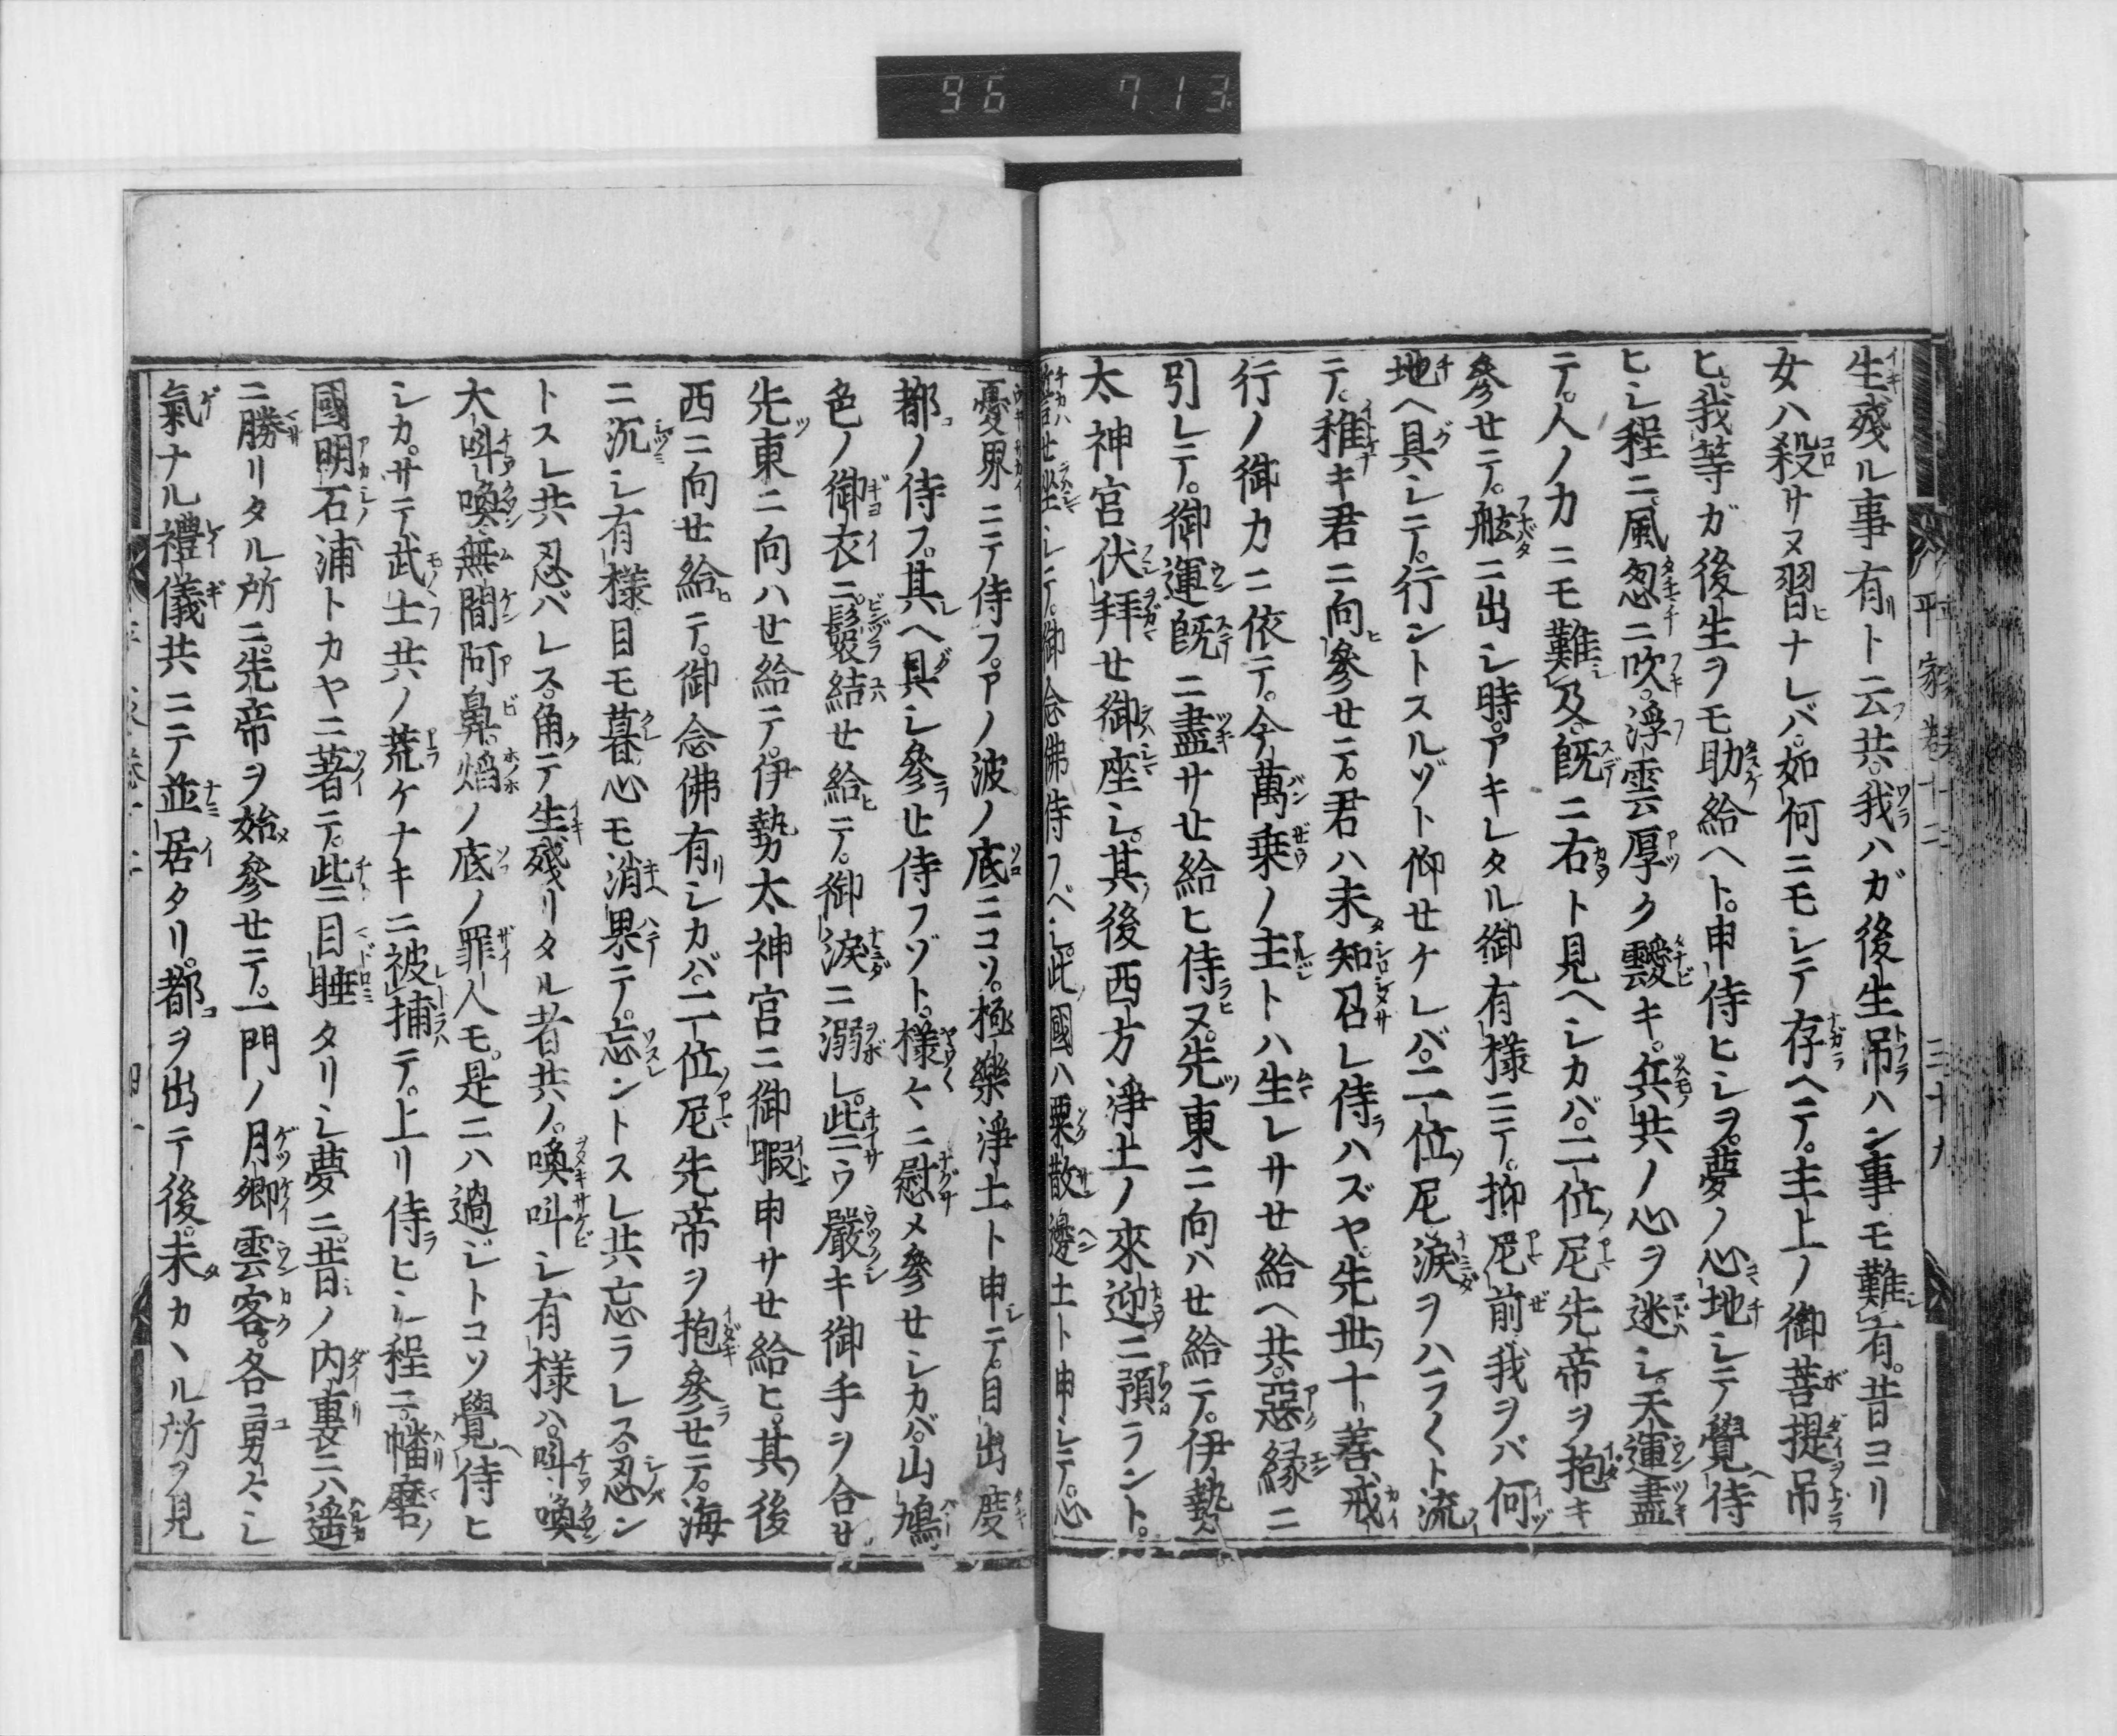 96 713
平家巻十二 三十九
生殘ル事有ト云共。我ハガ後生吊ハン事モ難有。昔コリ
女ハ殺サヌ習ナレバ。如何ニモレテ存ヘテ。主上ノ御菩提吊
ヒ。我等ガ後生ヲモ助給ヘト。申侍ヒシヲ。夢ノ心地シテ覺侍
ヒシ程ニ。風怱ニ吹。浮雲厚ク靉キ。兵共ノ心ヲ迷シ。天運盡
テ。人ノカニモ難及。既ニ右ト見ヘシカバ。二位尼先帝ヲ抱キ
參せテ。舷ニ出シ時。アキレタル御有樣ニテ。抑尼前我ヲバ何
地ヘ具シテ。行ントスルゾト仰せケレバ。二位尼涙ヲハラ〱ト流
テ。稚キ君ニ向參せテ。君ハ未知召レ侍ハズヤ。先世十善戒
行ノ御力ニ依テ。今萬乗ノ主トハ生レサせ給ヘ共。惡縁ニ
引レテ。御運既ニ盡サせ給ヒ侍ヌ。先東ニ向ハせ給テ。伊勢
太神宮伏拜せ御座シ。其後西方淨土ノ來迎ニ預ラント。
誓せ坐シテ。御念佛侍フベシ。此國ハ粟散邊土ト申シテ。心
憂界ニテ侍フ。アノ波ノ底ニコソ。極樂淨土ト申テ。目出度
都ノ侍フ。其ヘ具シ參せ侍フゾト。樣々ニ慰メ參せシカバ。山鳩
色ノ御衣ニ。鬢結せ給テ。御涙ニ溺レ。此ウ嚴キ御手ヲ合せ
先東ニ向ハせ給テ。伊勢太神宮ニ御暇申サせ給ヒ。其後
西ニ向せ給テ。御念佛有シカバ。二位尼先帝ヲ抱參せテ。海
ニ沉シ有樣。目モ暮。心モ消果テ。忘ントスレ共忘ラレス。忍ン
トスレ共忍バレス。角テ生殘リタル者共ノ。喚叫シ有樣ハ。叫喚
大叫喚。無間阿鼻。焔ノ底ノ罪人モ。是ニハ過ジトコソ覺侍ヒ
シカ。サテ武士共ノ荒ケナキニ被捕テ。上リ侍ヒシ程ニ。幡磨
國明石浦トカヤニ著テ。些目睡タリシ夢ニ。昔ノ内裏ニハ遥
ニ勝リタル所ニ。先帝ヲ始參せテ。一門ノ月卿雲客。各コ勇々シ
氣ナル禮儀共ニテ並居タリ。都ヲ出テ後。未カヽル所ヲ見